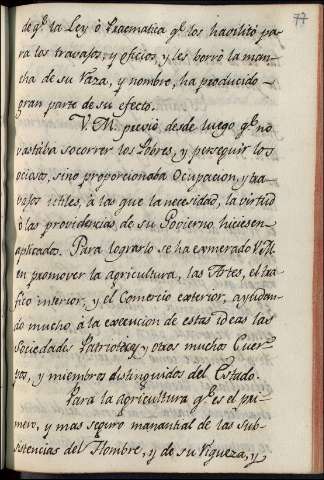 77
de qᵉ. la Ley ó Pracmatica qᵉ. los havilitó pa-
ra los travajos, y oficios, y les borró la man-
cha de su Raza, y nombre, ha producido
gran parte de su efecto.
V. M. previó desde luego qᵉ. no
vastaba socorrer los Pobres, y perseguir los
ociosos, sino proporcionaba Ocupacion, y tra-
vajos útiles, á las que la necesidad, la virtud
ó las providencias, de su Govierno, hiciesen
aplicados. Para lograrlo se há esmerado V. M.
en promover la agricultura, las Artes, el tra-
fico interior, y el Comercio exterior, ayudan-
do mucho, á la execucion de estas ideas las
Sociedades Patrioticas y otros muchos Cuer-
pos, y miembros distinguidos del Estado.
Para la agricultura qᵉ. es el pri-
mero, y mas seguro manantial de las Sub-
sistencias del Hombre, y de su riqueza, y